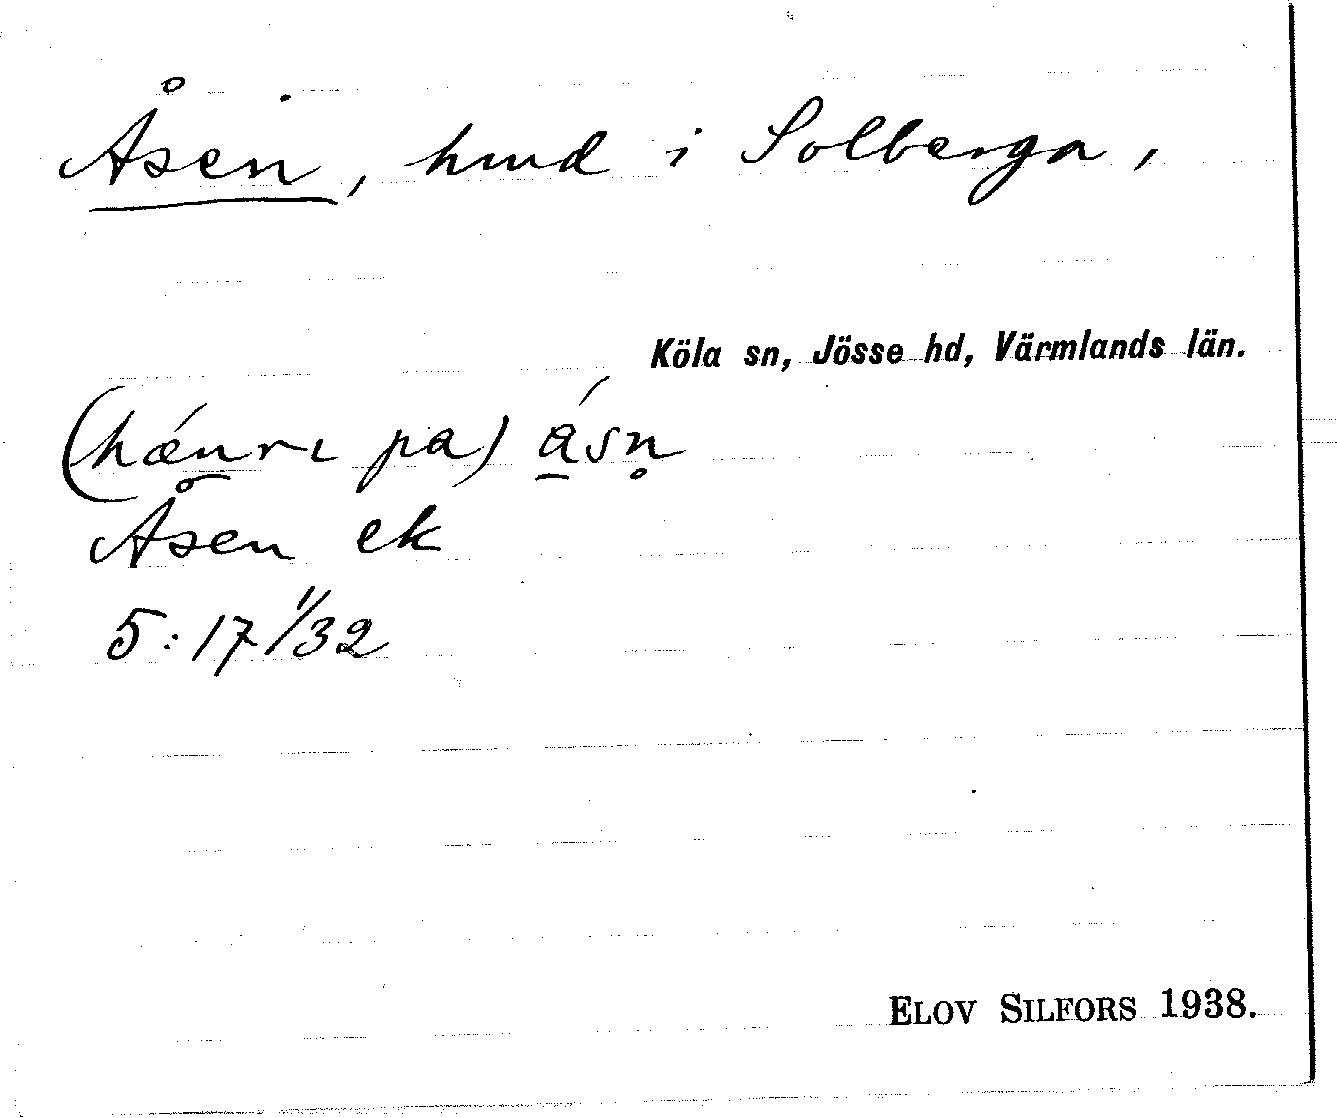 Åsen, hmd i Solberga,
Köla sn, Jösse hd, Värmlands län.
(hǽnrɩ pa) á̲sn̥
Åsen ek
5:17 1/32
ELOV SILFORS 1938.